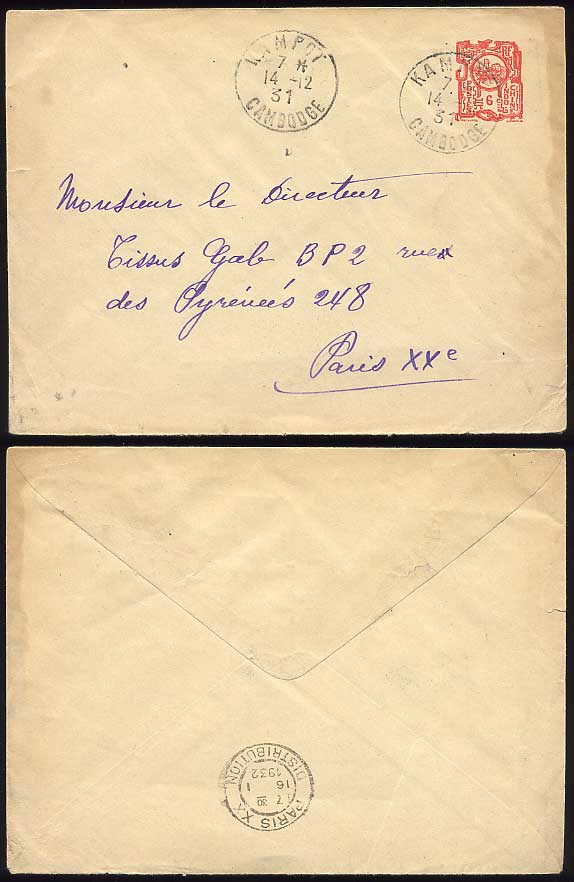 KAMPOT
7 *
14 -12
31
CAMBODGE
KAMPOT
7
14
31
CAMBODGE
6
Monsieur le Directeur
Tissus Gab BP2 rue
des Pyrénées 248
Paris XXe
PARIS XX
17 30
16 1
1932
DISTRIBUTION